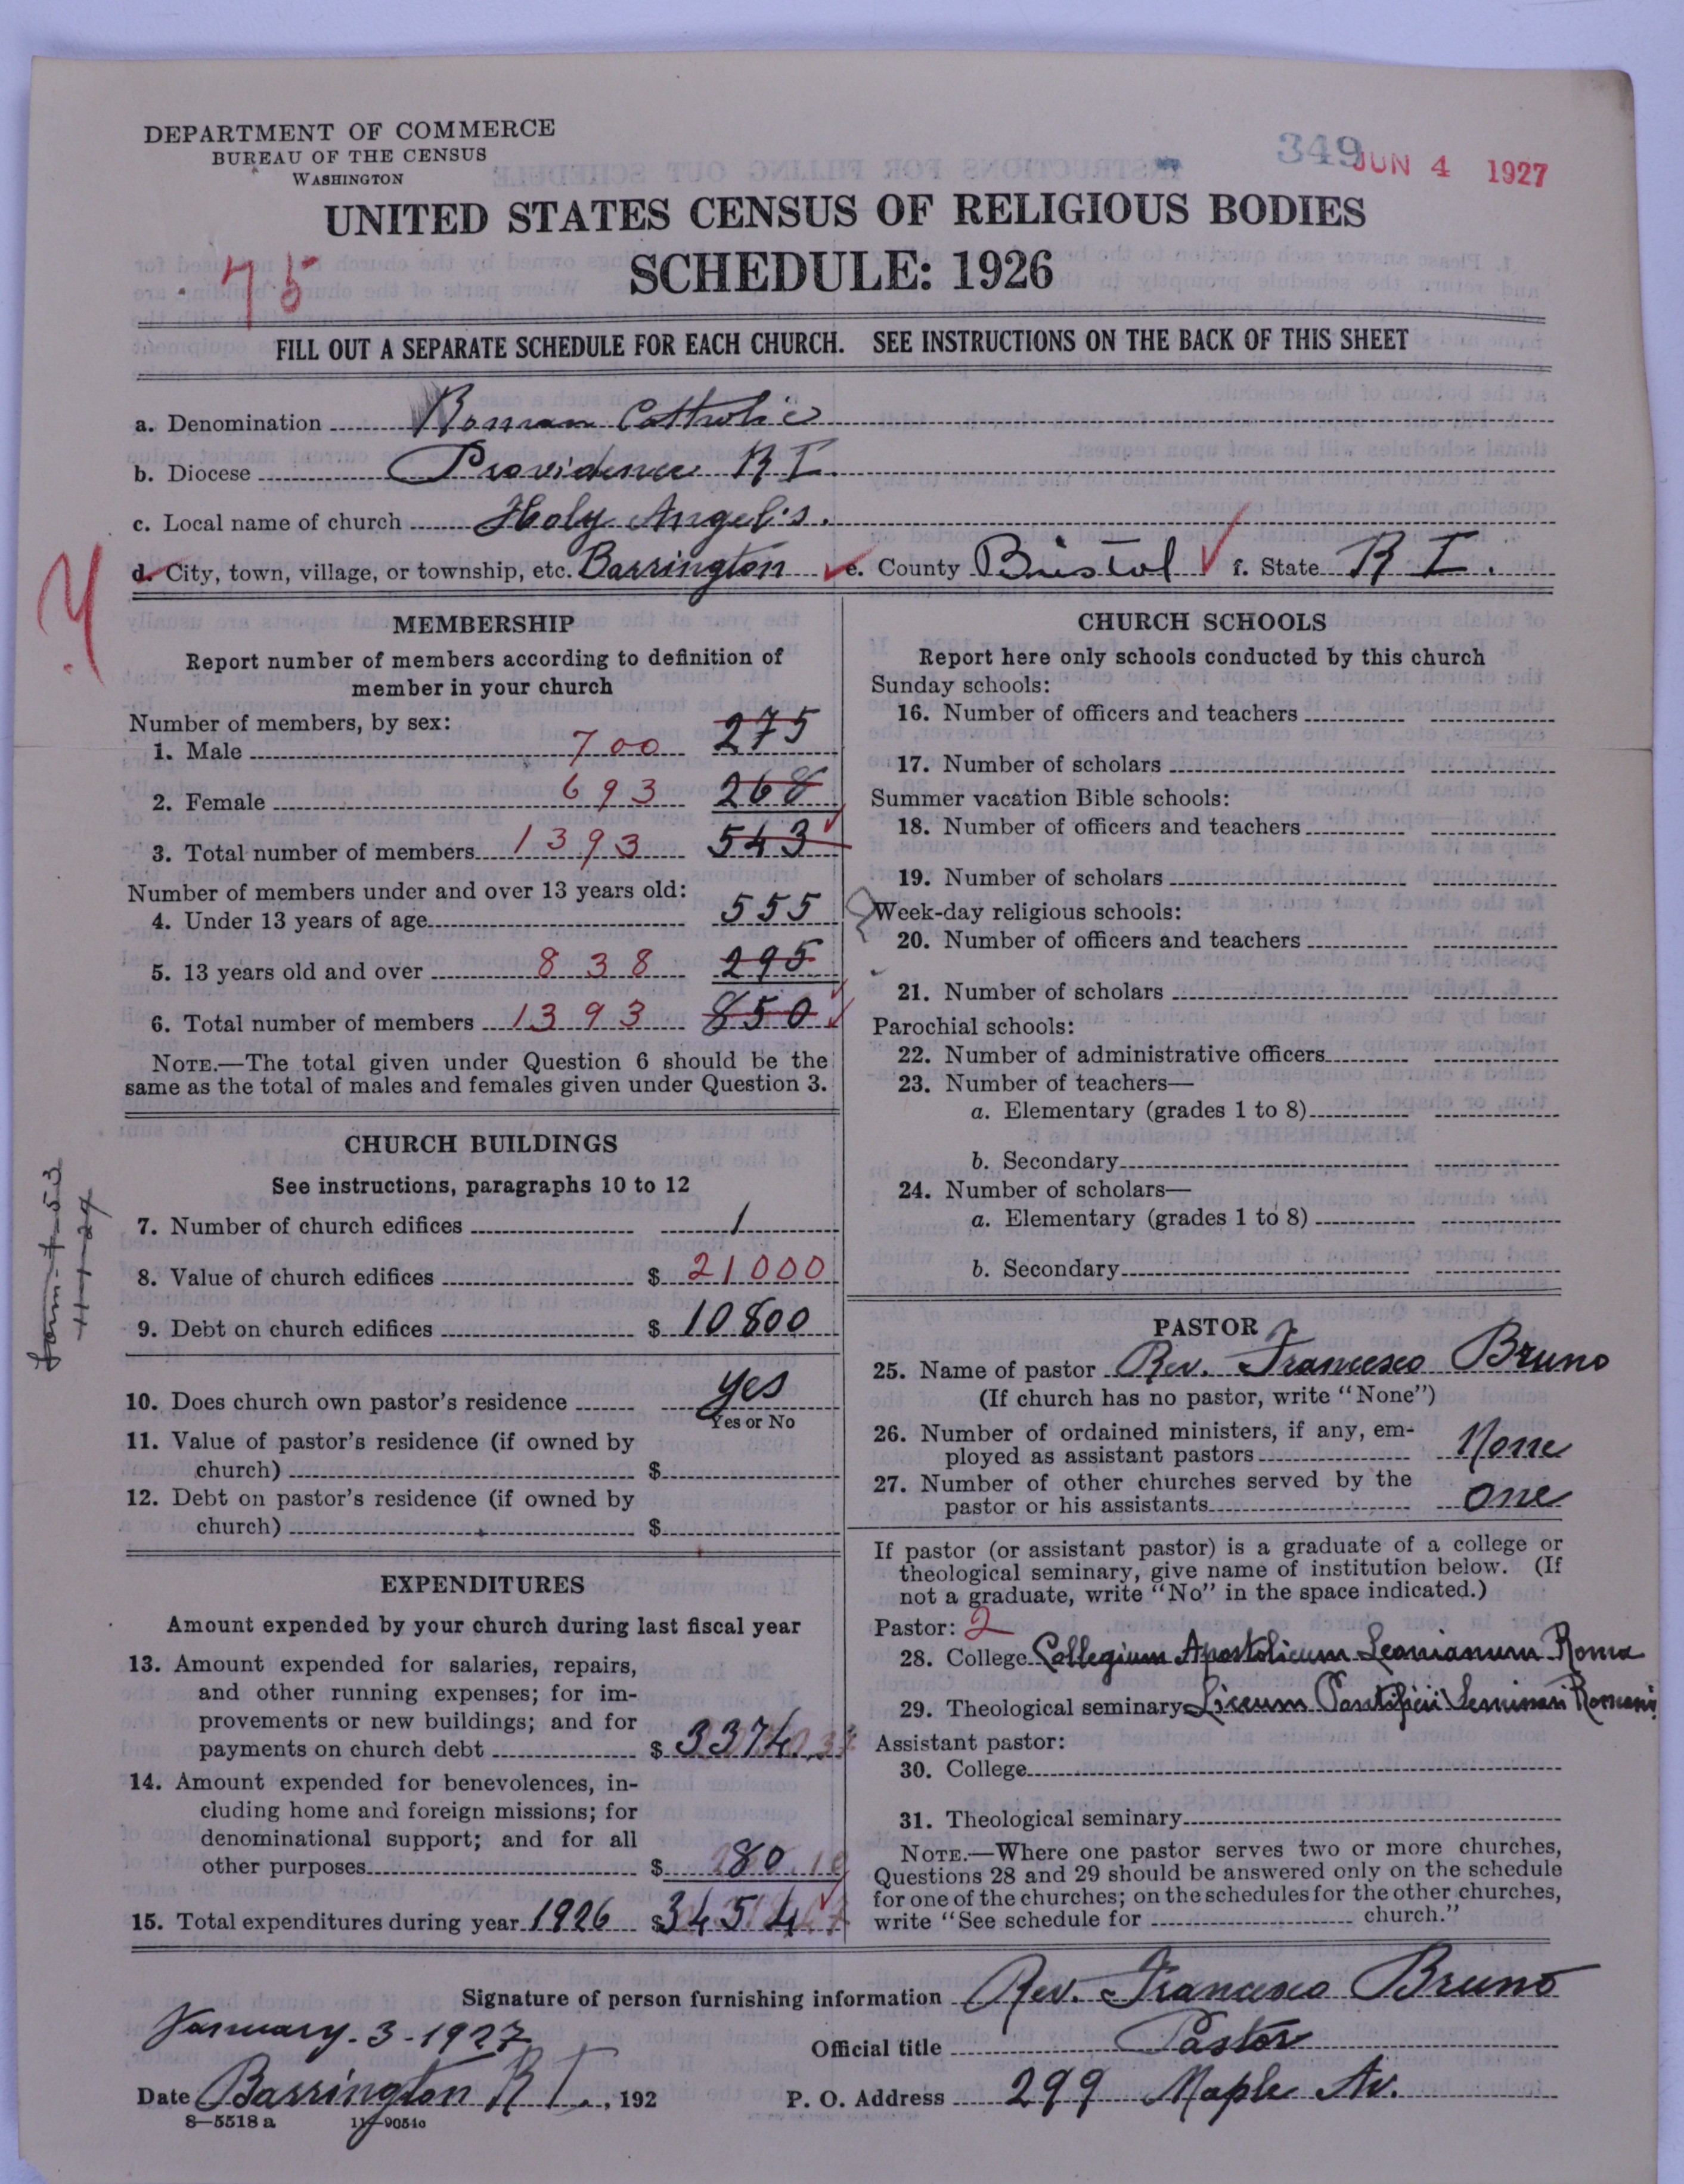 DEPARTMENT OF COMMERCE
BUREAU OF THE CENSUS
WASHINGTON
349
JUN 4 1927
UNITED STATES CENSUS OF RELIGIOUS BODIES
SCHEDULE: 1926
75
FILL OUT A SEPARATE SCHEDULE FOR EACH CHURCH. SEE INSTRUCTIONS ON THE BACK OF THIS SHEET
a. Denomination Roman Catholic
b. Diocese Providence R I.
c. Local name of church Holy Angel's.
d. City, town, village, or township, etc. Barrington e. County Bristol f. State R I.
MEMBERSHIP
Report number of members according to definition of
member in your church
Number of members, by sex:
1. Male 700 275
2. Female 693 268
3. Total number of members 1393 543
Number of members under and over 13 years old:
4. Under 13 years of age 555
5. 13 years old and over 838 295
6. Total number of members 1393 850
NOTE.—The total given under Question 6 should be the
same as the total of males and females given under Question 3.
CHURCH BUILDINGS
See instructions, paragraphs 10 to 12
7. Number of church edifices 1
8. Value of church edifices $ 21000
9. Debt on church edifices $ 10800
10. Does church own pastor's residence yes
Yes or No
11. Value of pastor's residence (if owned by
church) $
12. Debt on pastor's residence (if owned by
church) $
EXPENDITURES
Amount expended by your church during last fiscal year
13. Amount expended for salaries, repairs,
and other running expenses; for im-
provements or new buildings; and for
payments on church debt $ 3374
14. Amount expended for benevolences, in-
cluding home and foreign missions; for
denominational support; and for all
other purposes $ 80
15. Total expenditures during year 1926 $ 3454
CHURCH SCHOOLS
Report here only schools conducted by this church
Sunday schools:
16. Number of officers and teachers
17. Number of scholars
Summer vacation Bible schools:
18. Number of officers and teachers
19. Number of scholars
Week-day religious schools:
20. Number of officers and teachers
21. Number of scholars
Parochial schools:
22. Number of administrative officers
23. Number of teachers—
a. Elementary (grades 1 to 8)
b. Secondary
24. Number of scholars—
a. Elementary (grades 1 to 8)
b. Secondary
PASTOR
25. Name of pastor Rev. Francesco Bruno
(If church has no pastor, write "None")
26. Number of ordained ministers, if any, em-
ployed as assistant pastors None
27. Number of other churches served by the
pastor or his assistants one
If pastor (or assistant pastor) is a graduate of a college or
theological seminary, give name of institution below. (If
not a graduate, write "No" in the space indicated.)
Pastor: 2
28. College Collegium Apostolicum Leonianum Roma
29. Theological seminary Liceum Pontificii Seminari Romani
Assistant pastor:
30. College
31. Theological seminary
NOTE.—Where one pastor serves two or more churches,
Questions 28 and 29 should be answered only on the schedule
for one of the churches; on the schedules for the other churches,
write "See schedule for church."
Signature of person furnishing information Rev. Francesco Bruno
January. 3. 1927
Official title Pastor
Date Barrington R I., 192
P. O. Address 299 Maple Av.
8—5518 a 11—9054o